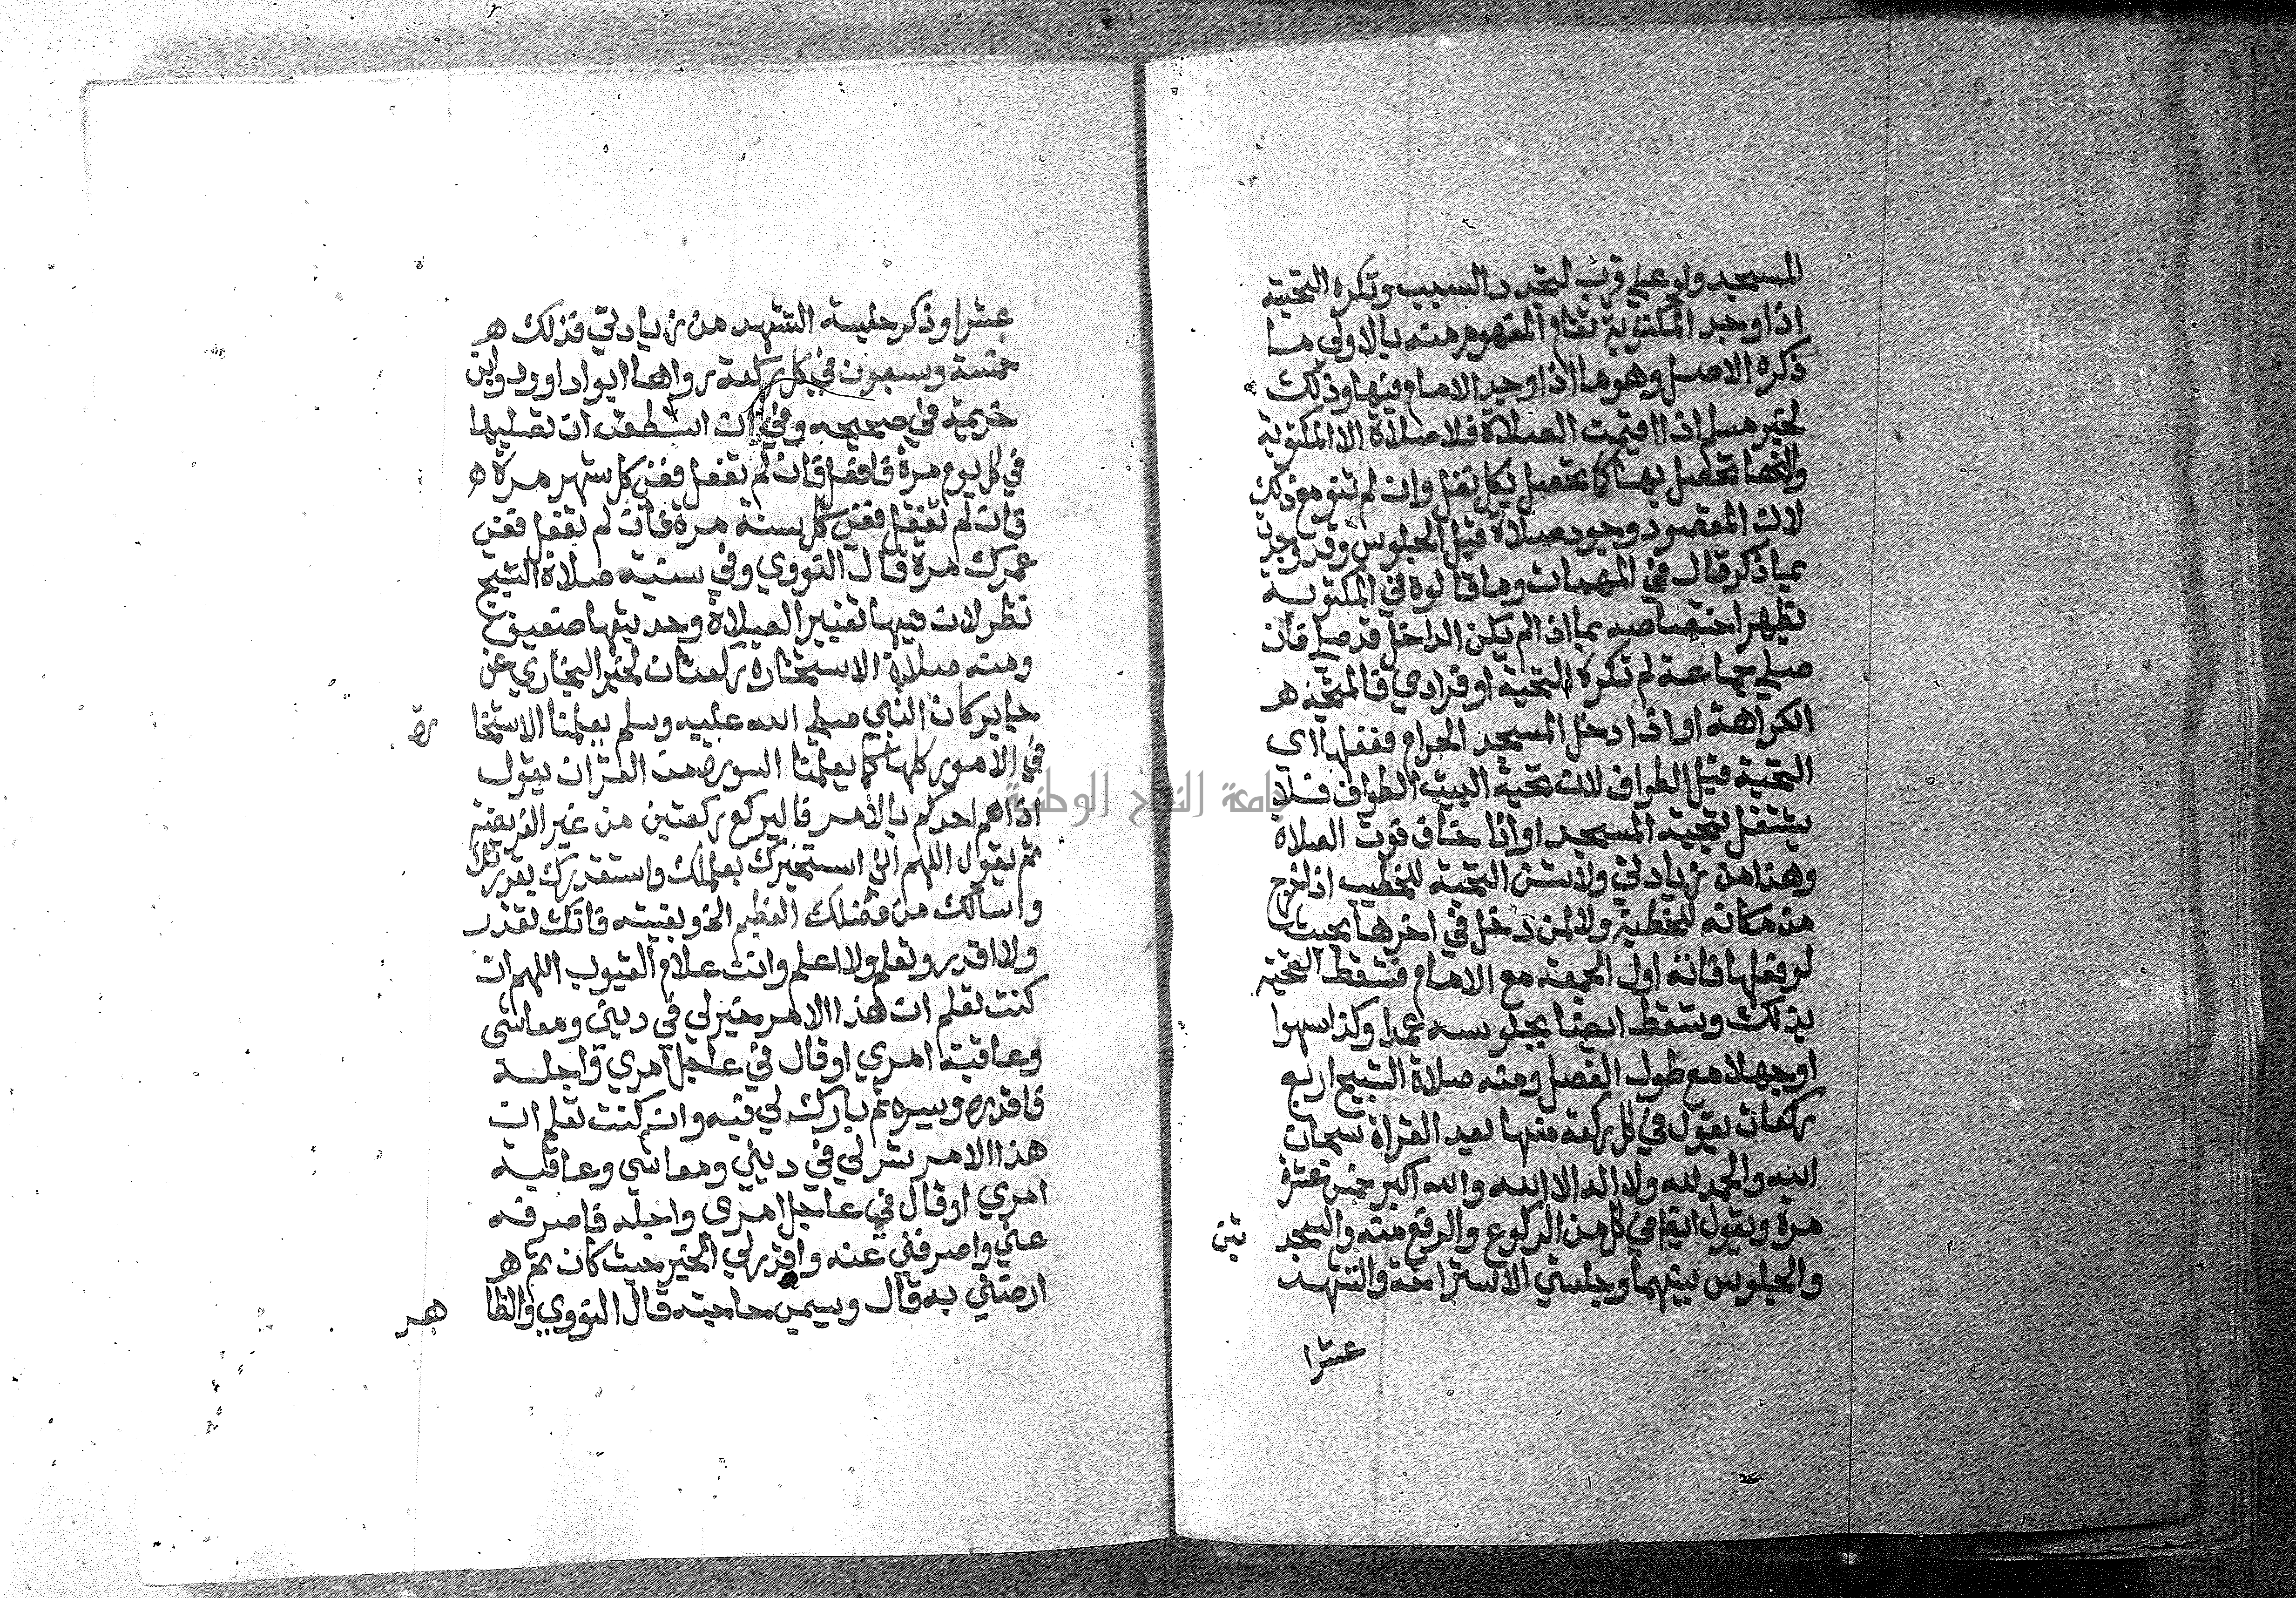 المسجد ولو على قرب لتجدد السبب وتكره التحية
اذا وجد المكتوبة تقام المفهوم منه بالاولى ما
ذكره الاصل وهو ما اذا وجد الامام فيها وذلك
لخبر مسلم اذا اقيمت الصلاة فلا صلاة الا المكتوبة
والتحصل بها كما تحصل بكل نفل وان لم تنو مع ذلك
لان المقصود وجود صلاة قبل الجلوس وقد وجدت
بما ذكر قال في المهمات وما قالوه في المكتوبة
يظهر اختصاصه بما اذا لم يكن الداخل قد صلى فان
صلى جماعة لم تكره التحية او فرادى فالمتجه هـ
الكراهة او اذا دخل المسجد الحرام ففعلها اي
التحية قبل الطواف لان تحية البيت الطواف فلا
يشتغل بتحية المسجد او اذا خاف فوت الصلاة
وهذا من زيادتي ولا تسن التحية للخطيب اذا خرج
من مكانه للخطبة ولا لمن دخل في اخرها بحيث
لو فعلها فاته اول الجمعة مع الامام فتسقط التحية
بذلك وتسقط ايضا بجلوسه عمدا وكذا سهوا
او جهلا مع طول الفصل ومنه صلاة التسبيح اربع
ركعات يقول في كل ركعة منها بعد القراة سبحان
الله والحمد لله ولا اله الا الله والله اكبر خمس عشرة
مرة ويقول ايضا في كل من الركوع والرفع منه والسجد
تين
والجلوس بينهما وجلستي الاستراحة والتشهد
عشرا
عشرا وذكر جلسة التشهد من زيادتي فذلك هـ
خمسة وسبعون في كل ركعة رواها ابو داوود وابن
خزيمة في صحيحه وفي ان استطعت ان تصليها
في كل يوم مرة فافعل فان لم تفعل ففي كل شهر مرة هـ
فان لم تفعل ففي كل سنة مرة فان لم تفعل ففي
عمرك مرة قال النووي وفي سنية صلاة التسبيح
نظر لان فيها تغيير الصلاة وحديثها ضعيف
ومنه صلاة الاستخارة ركعتان لخبر البخاري عن
جابر كان النبي صلى الله عليه وسلم يعلمنا الاستخا
رة
في الامور كلها كما يعلمنا السورة من القران يقول
اذا هم احدكم بالامر فاليركع ركعتين من غير الفريضة
ثم يقول اللهم اني استخيرك بعلمك واستقدرك بقدرتك
واسالك من فضلك العظيم الخ وبقيته فانك تقدر
ولا اقدر وتعلم ولا اعلم وانت علام الغيوب اللهم ان
كنت تعلم ان هذا الامر خير لي في ديني ومعاشي
وعاقبة امري او قال في عاجل امري واجله
فاقدره ويسره ثم بارك لي فيه وان كنت تعلم ان
هذا الامر شر لي في ديني ومعاشي وعاقبة
امري او قال في عاجل امري واجله فاصرفه
عني واصرفني عنه واقدر لي الخير حيث كان ثم هـ
ارضني به قال ويسمي حاجته قال النووي والظا
هر
جامعة النجاح الوطنية